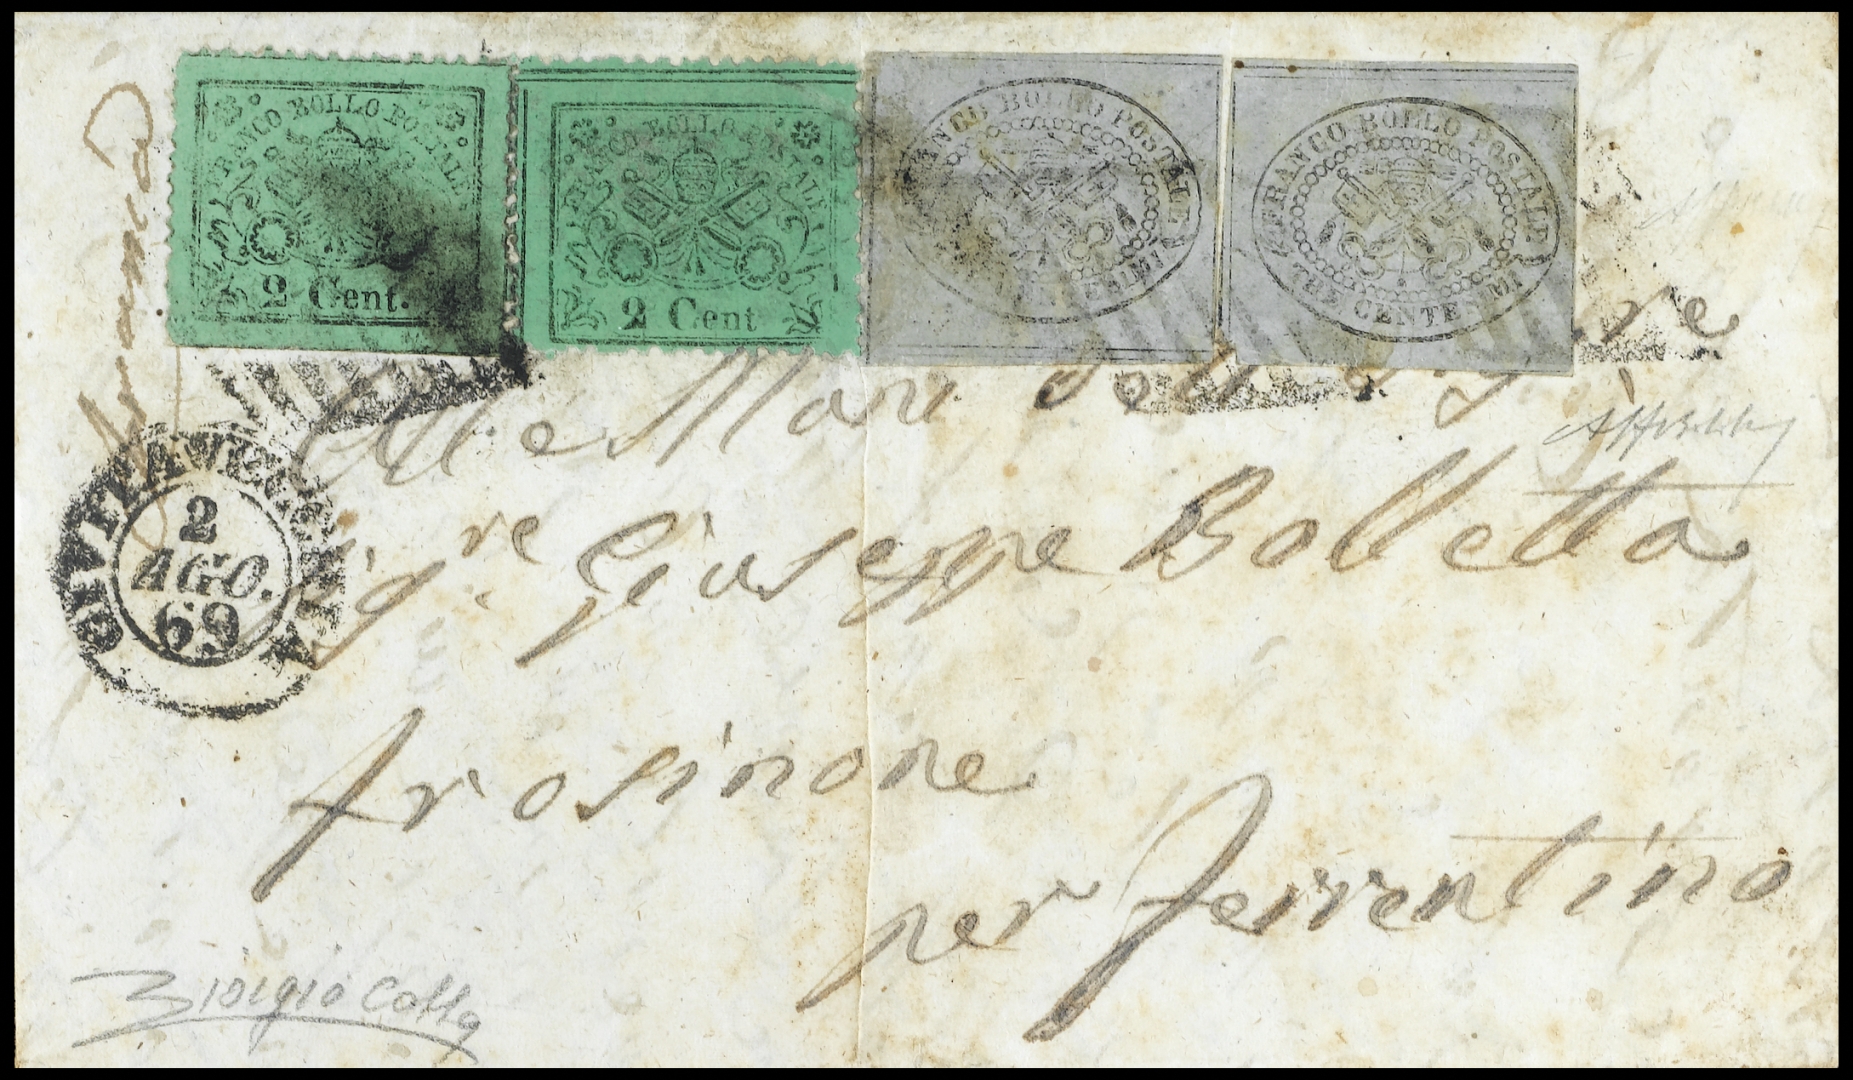 FRANCO BOLLO POSTALE
2 Cent.
FRANCO BOLLO POSTALE
2 Cent
FRANCO BOLLO POSTALE
FRANCO BOLLO POSTALE
TRE CENTESIMI
CIVITA VECCHIA
2
AGO.
69
re
Alle Mani
Sigre. Giuseppe Bolletta
frosinone
per ferrentino
Giorgio Colla